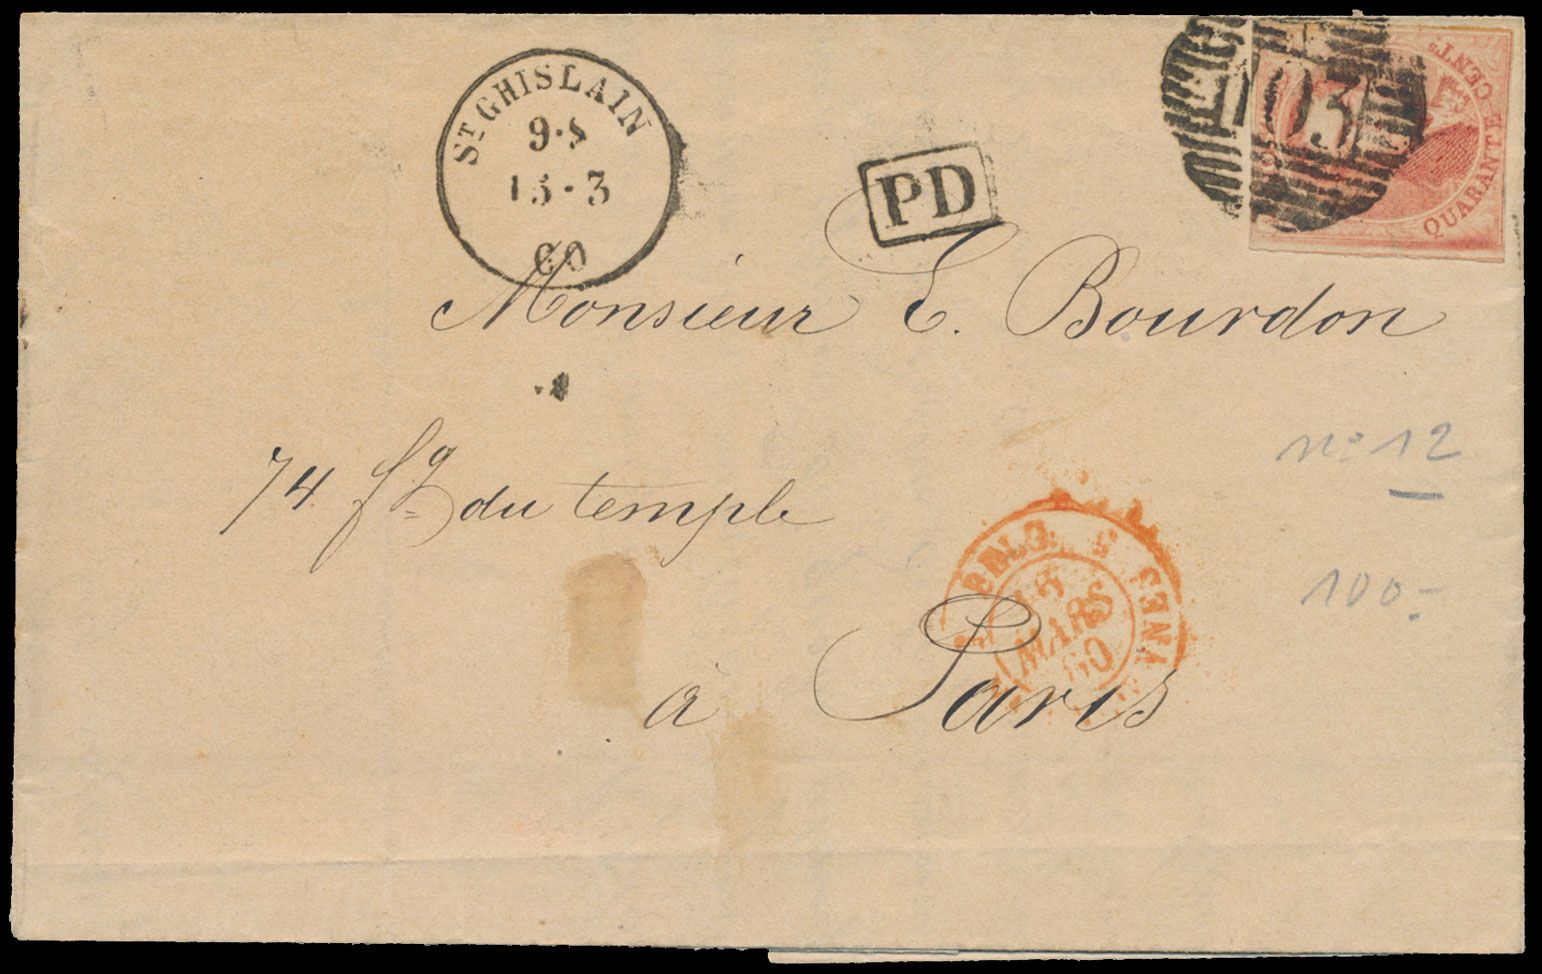 ST GHISLAIN
9·S
15·3
60
PD
103
QUARANTE CENTS
Monsieur E. Bourdon
74 fg du temple
à Paris
no 12
100-
BELG.
MARS
60